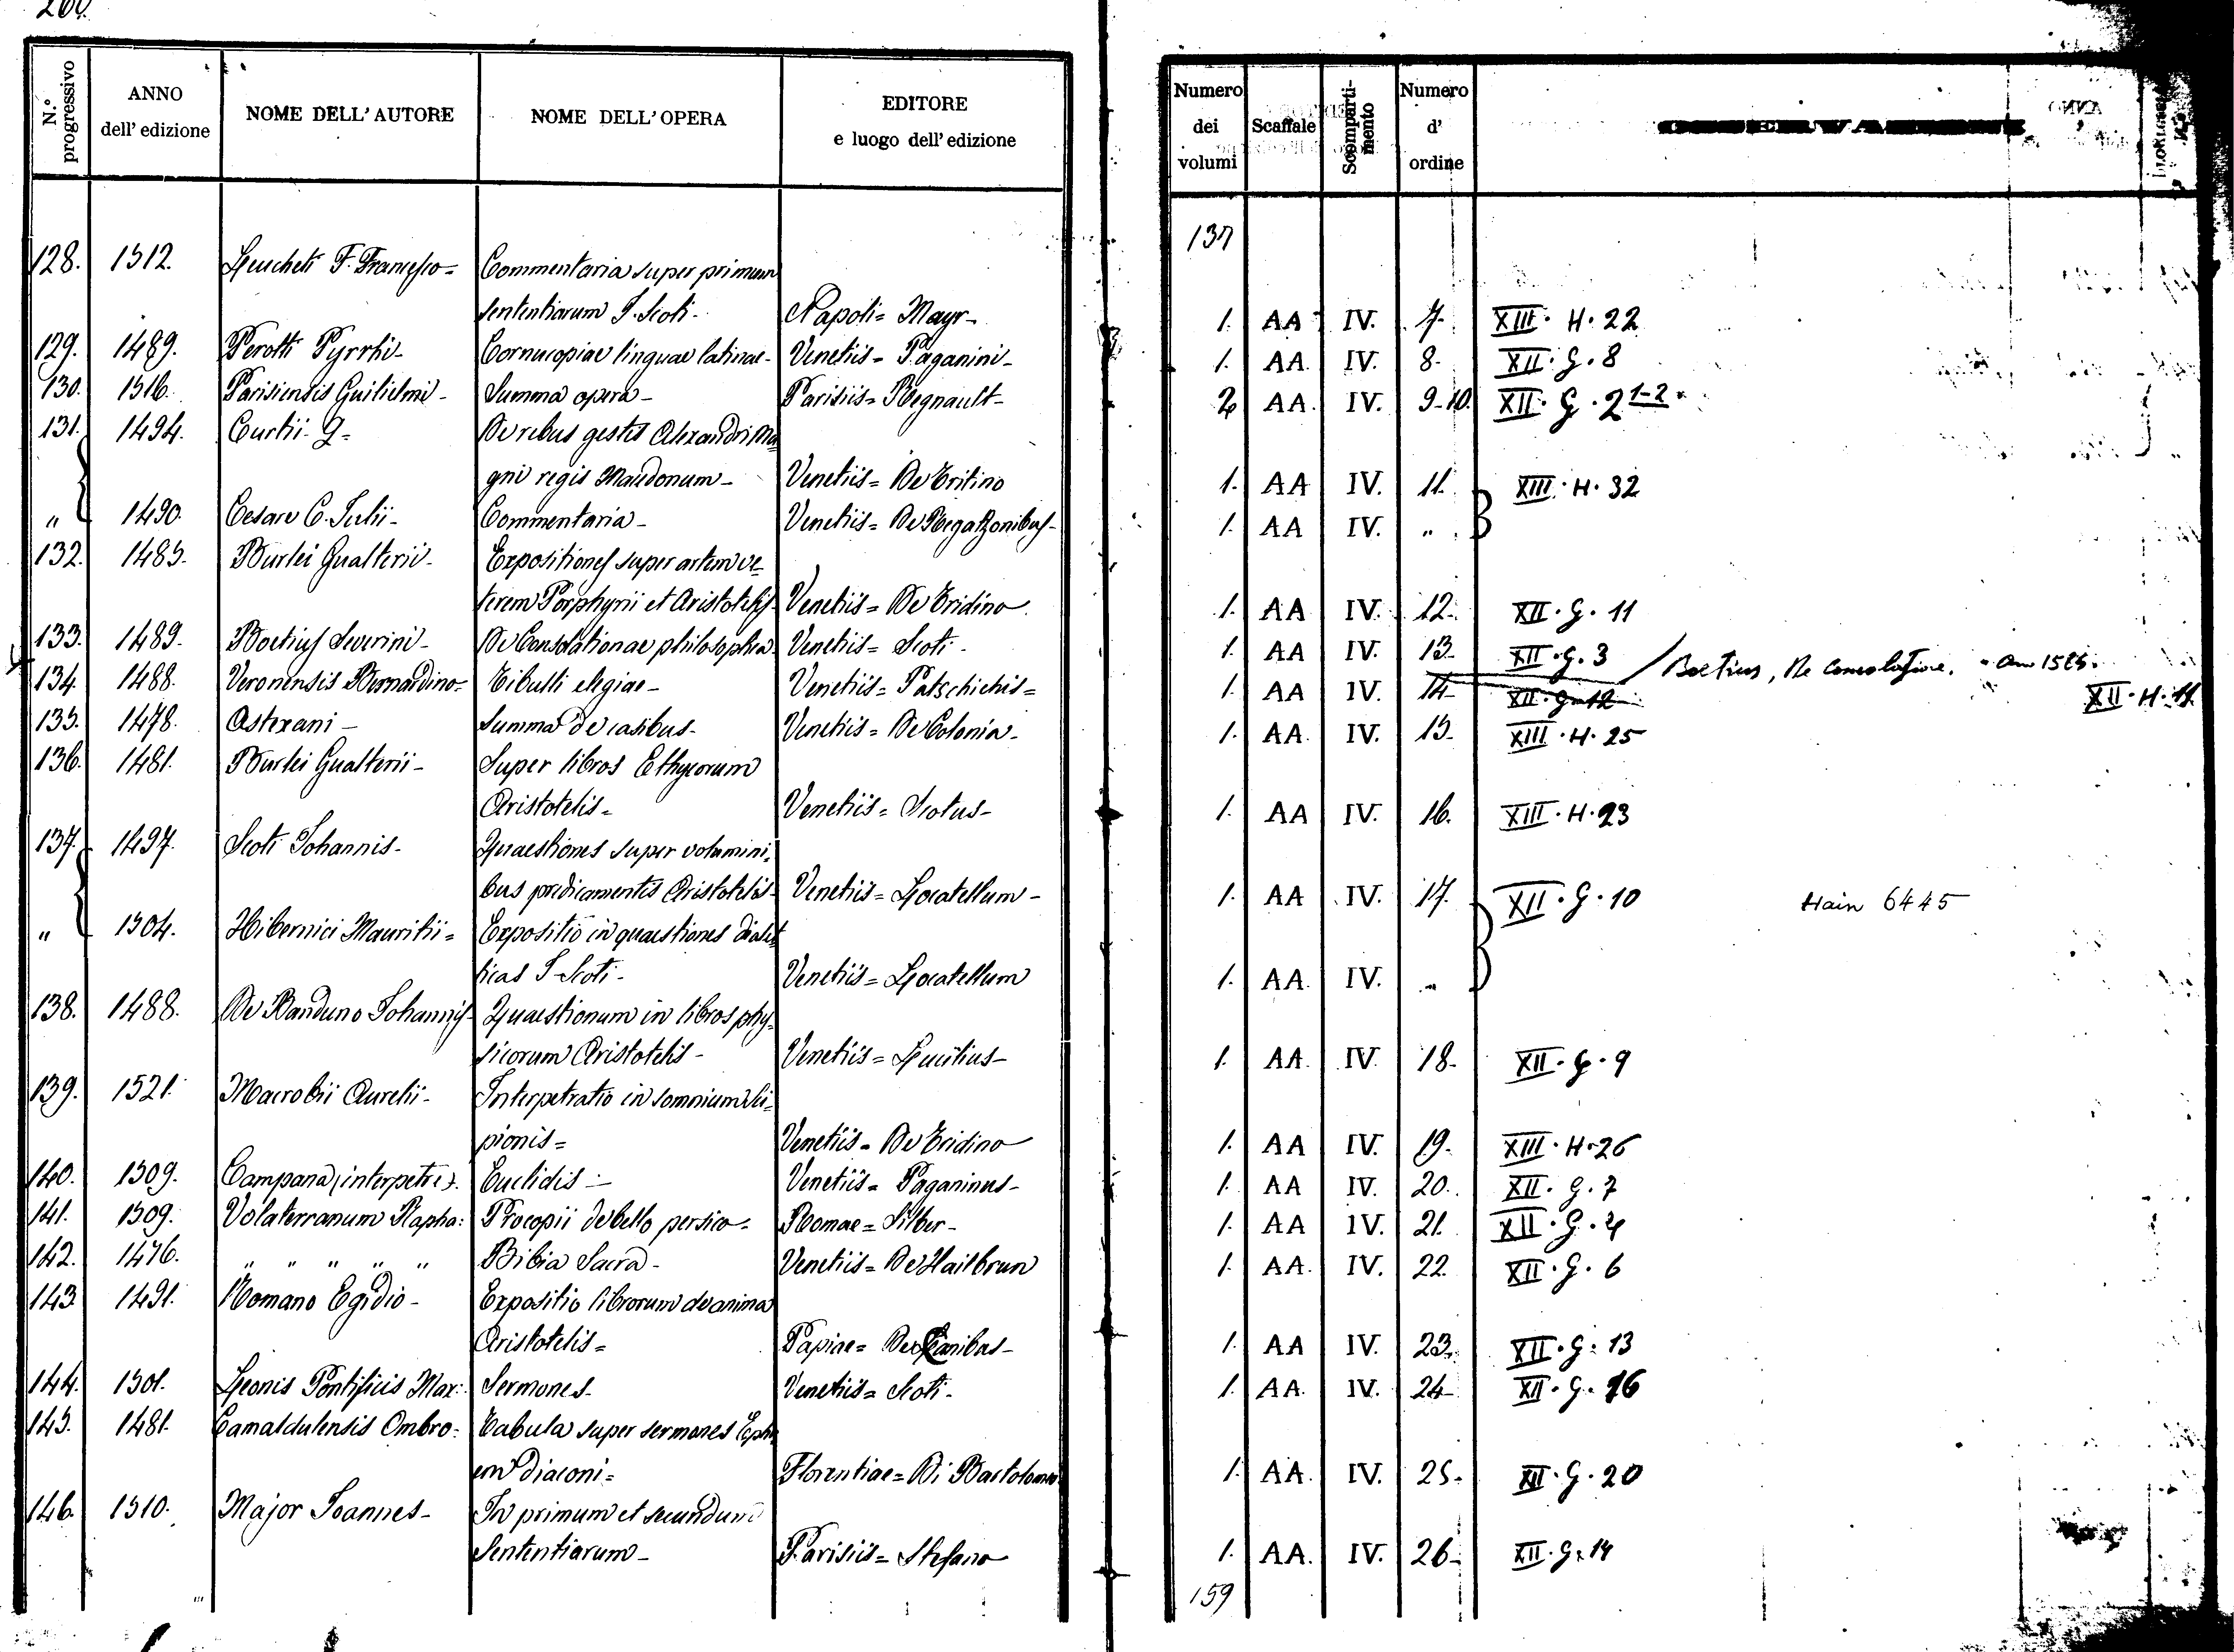 260.
N.° progressivo
ANNO dell' edizione
NOME DELL' AUTORE
NOME DELL' OPERA
EDITORE e luogo dell' edizione
Numero dei volumi
Scaffale
Scomparti-mento
Numero d' ordine
137
128. 1512. Leucheti F. Francesco= Commentaria super primum
sententiarum J. Scoti- Napoli= Mayr- 1. AA IV. 7. XIII. H. 22
129. 1489. Perotti Pyrrhi- Cornucopiae linguae latinae- Venetiis= Paganini- 1. AA. IV. 8- XII. G. 8
130. 1516. Parisiensis Guilielmi- Summa opera- Parisiis= Regnault- 2 AA. IV. 9-10. XII. G. 2 1-2
131. 1494. Curtii- Q= De rebus gestis Alexandri Ma
gni regis Macedonum- Venetiis= De Tritino 1. AA IV. 11. XIII. H. 32
" 1490. Cesare C. Julii- Commentaria- Venetiis= De Ragazonibus- 1. AA IV. "
132. 1485. Burlei Gualterii- Expositiones super artem ve=
terem Porphyrii et Aristotelis- Venetiis= De Tridino 1. AA IV. 12. XII. G. 11
133. 1489. Boetius Severini- De Consolationae philosophia- Venetiis= Scoti- 1. AA IV. 13- XII. G. 3 / Boetius, De Consolatione.
134. 1488. Veronensis Bernardino= Tibulli elegiae- Venetiis= Patschichis= 1. AA IV. 14- XII. G. 12 XII. H. 11
135. 1478. Astexani- Summa de casibus- Venetiis= De Colonia- 1. AA. IV. 15- XIII. H. 25
136. 1481. Burlei Gualterii- Super libros Ethycorum
Aristotelis= Venetiis= Scotus- 1. AA IV. 16. XIII. H. 23
137. 1497. Scoti Johannis- Quaestiones super volumini=
bus predicamentis Aristotelis- Venetiis= Locatellum- 1. AA IV. 17. XII. G. 10 Hain 6445
" 1504. Hibernici Mauritii= Expositio in quaestiones dialet
ticas J Scoti- Venetiis= Locatellum 1. AA. IV. "
138. 1488. De Banduno Johannis- Quaestionum in libros phy=
sicorum Aristotelis- Venetiis= Lucilius- 1. AA. IV. 18- XII. G. 9
139. 1521. Macrobii Aurelii- Interpetratio in somnium Sci=
pionis= Venetiis- De Tridino 1. AA IV. 19. XIII. H. 26
140. 1509. Campana (interpetre). Euclidis- Venetiis= Paganinus- 1. AA IV. 20. XII. G. 7
141. 1509. Volaterranum Rapha: Procopii de bello persico- Romae= Silber- 1. AA IV. 21. XII. G. 4
142. 1476. " " " " " Bibia Sacra- Venetiis= De Hailbrun 1. AA. IV. 22. XII. G. 6
143. 1491. Romano Egidio- Expositio librorum de anima
Aristotelis= Papiae= De Canibus- 1. AA IV. 23. XII. G. 13
144. 1501. Leonis Pontificis Max:. Sermones- Venetiis= Scoti- 1. AA. IV. 24- XII. G. 16
145. 1481. Camaldulensis Ombro: Tabula super sermones Eph
em diaconi= Florentiae= Di Bartolomeo 1. AA. IV. 25- XII. G. 20
146. 1510. Major Joannes- In primum et secundum
Sententiarum- Parisiis= Stefano 1. AA. IV. 26- XII. G. 14
159